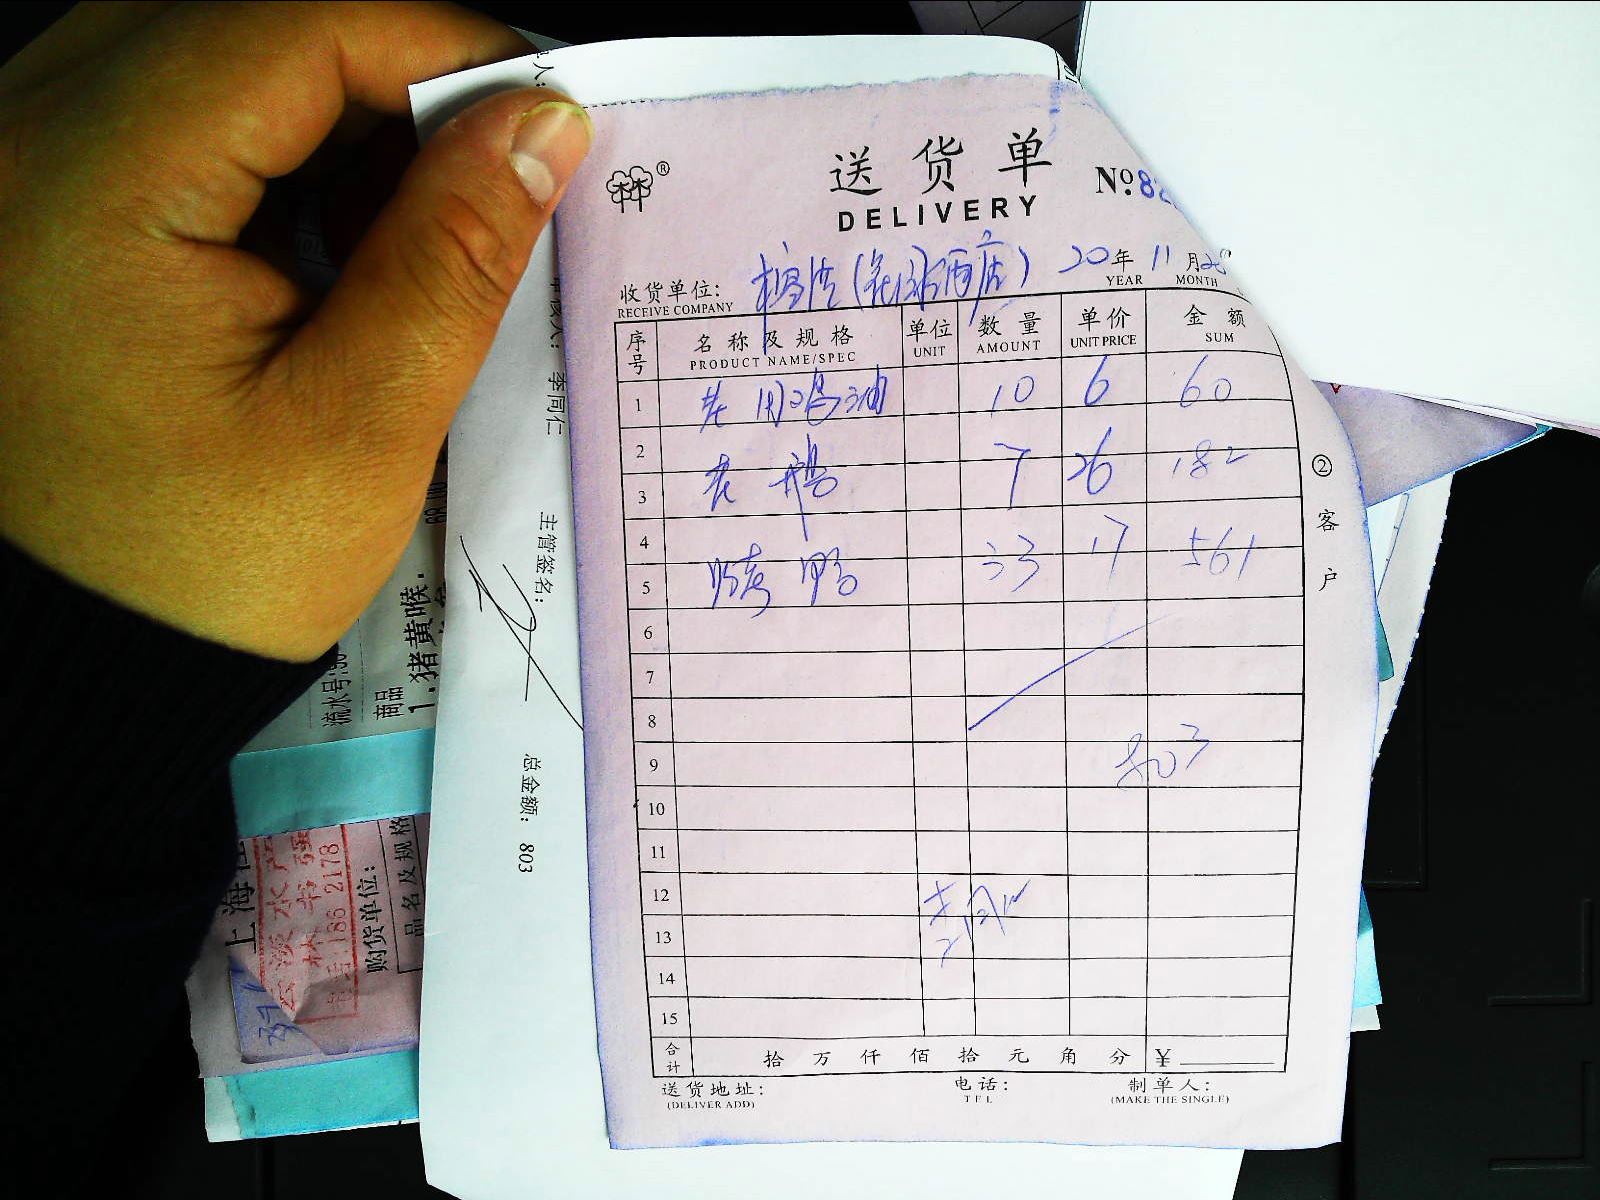 送货单
DELIVERY
№82
收货单位:
RECEIVE COMPANY
20年11月
YEAR MONTH
序号 名称及规格 单位 数量 单价 金额
PRODUCT NAME/SPEC UNIT AMOUNT UNIT PRICE SUM
1 10 6 60
2
3 老鸭 7 26 182
4
5 鸭 33 17 561
6
7
8
9 803
10
11
12
13
14
15
合计 拾万仟佰拾元角分 ¥
送货地址: 电话: 制单人:
(DELIVER ADD) TEL (MAKE THE SINGLE)
②客户
李同仁
主管签名:
总金额: 803
流水号:
商品
1.猪黄喉.
68.00
上海
购货单位:
品名及规格
淡水产
林书强
186 2178